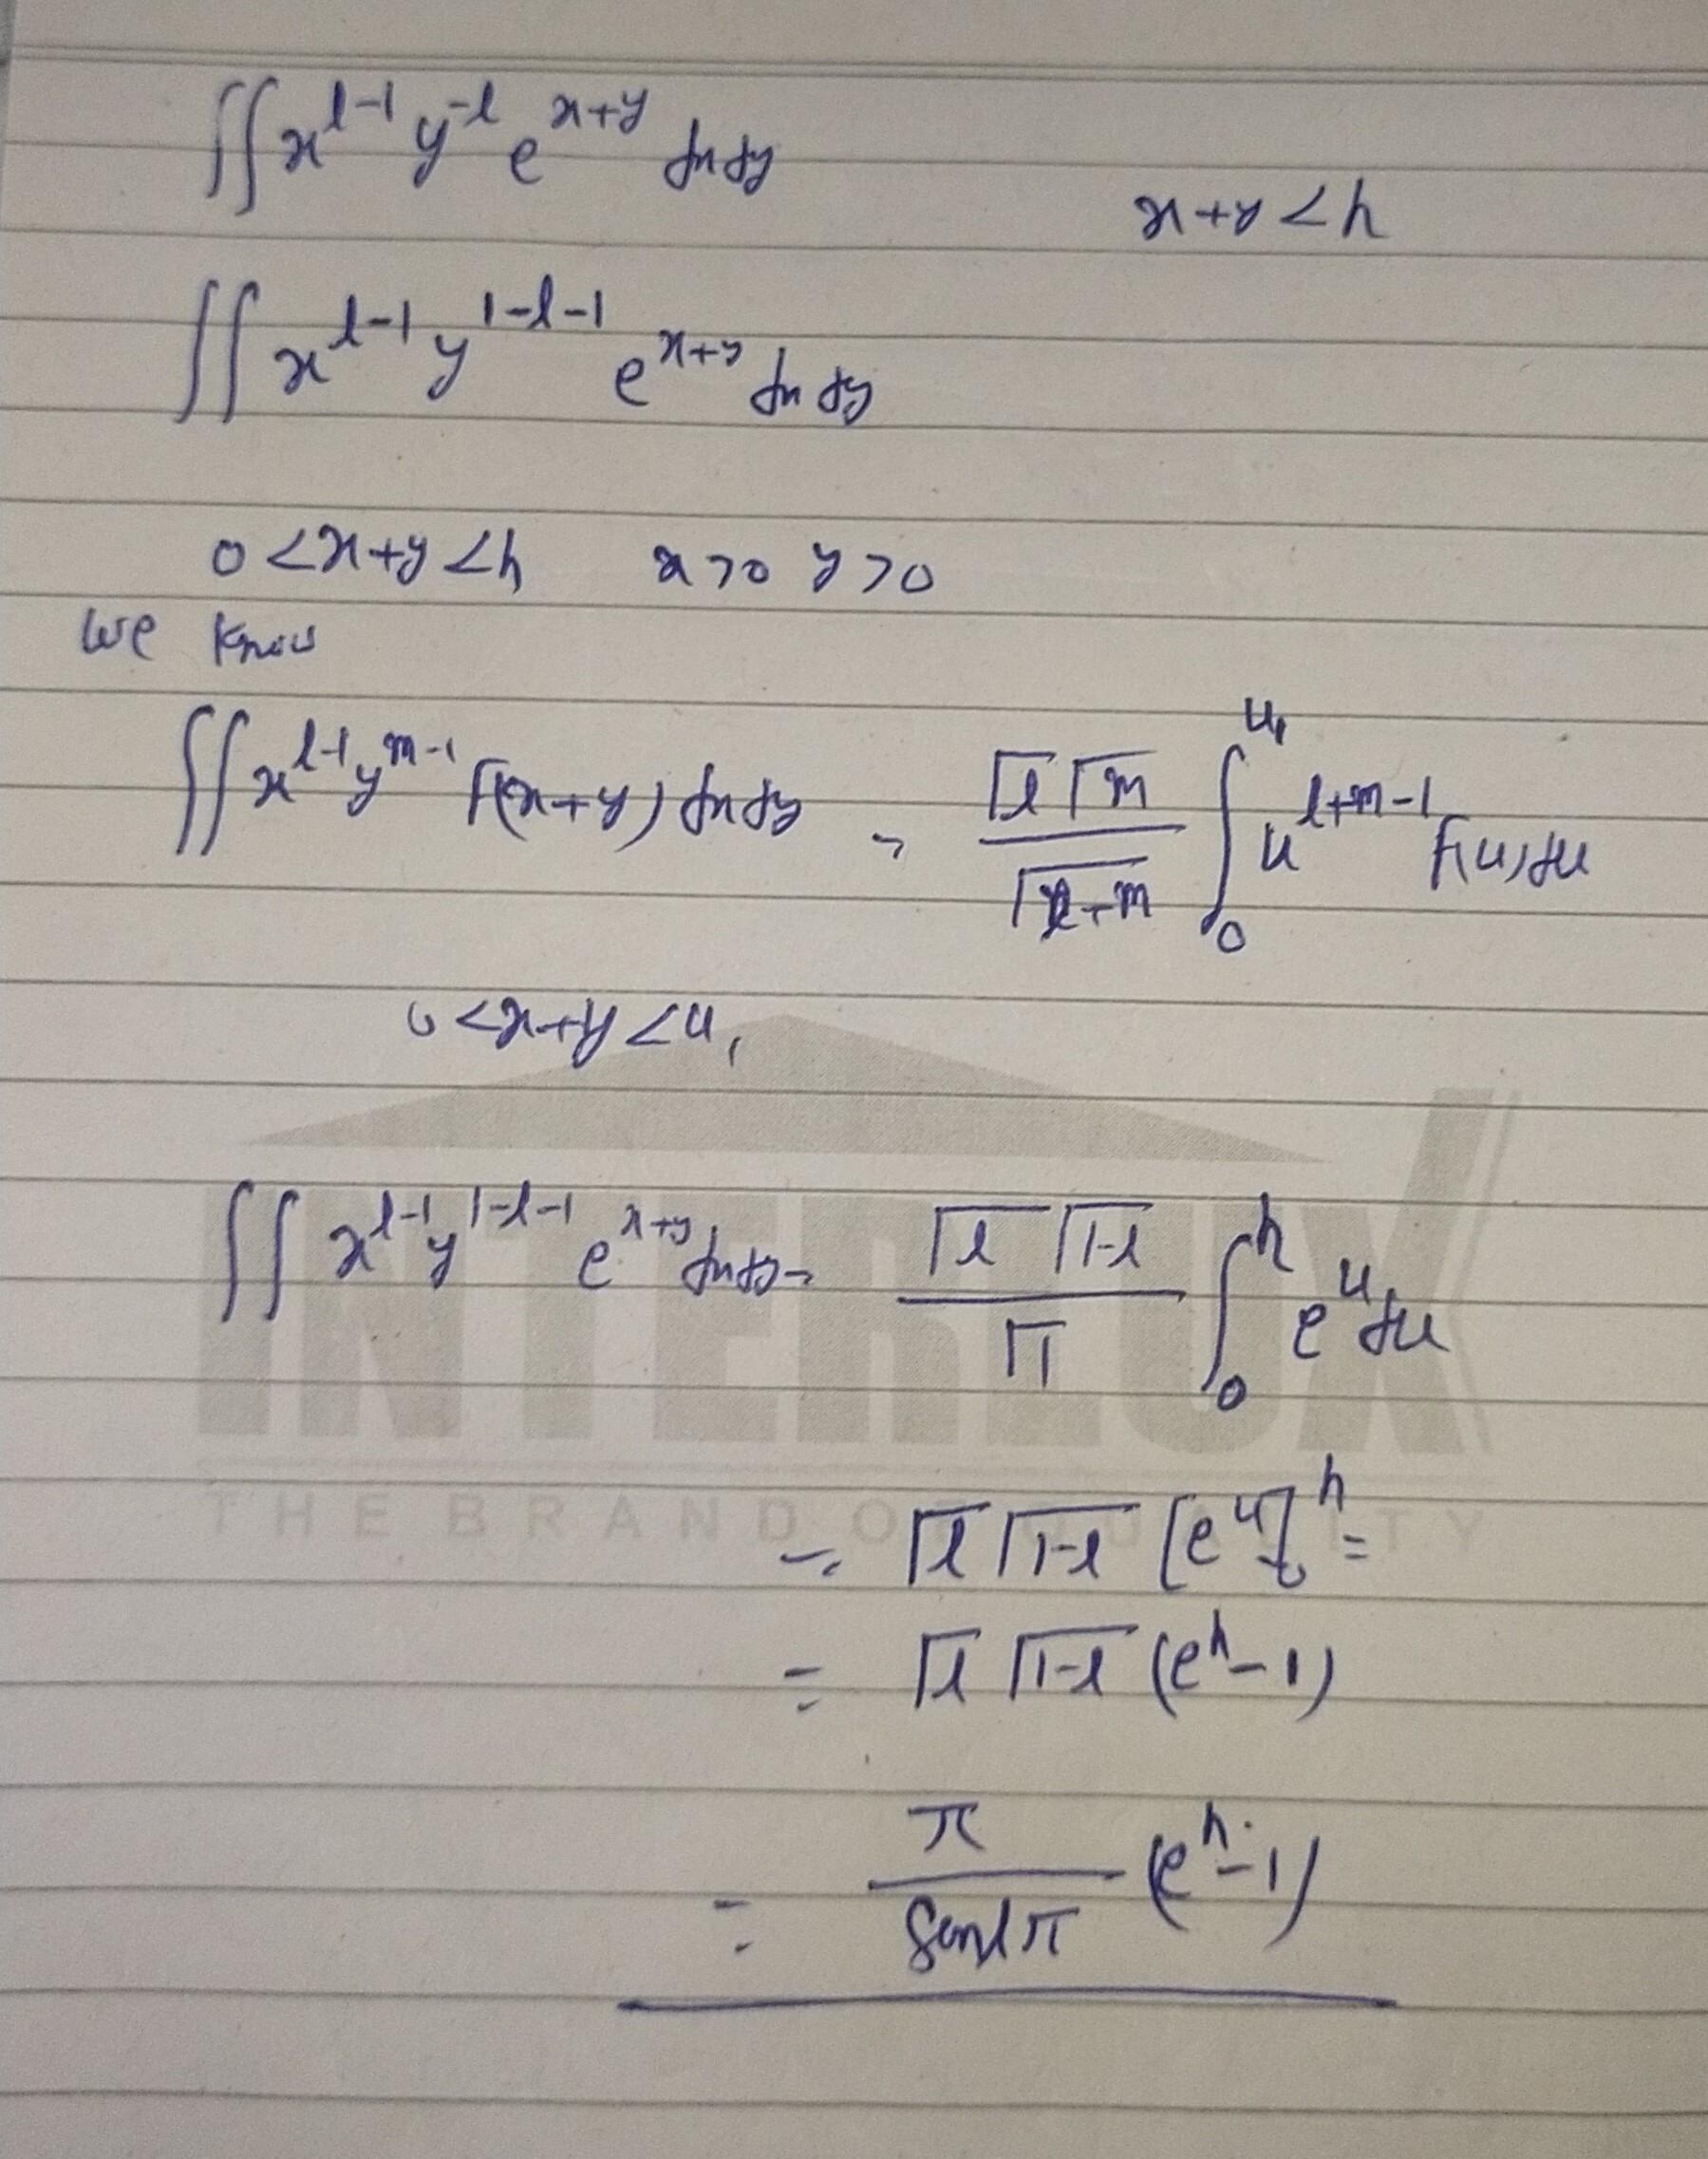 ∬ x^{l-1} y^{-l} e^{x+y} dx dy
x+y < h
∬ x^{l-1} y^{1-l-1} e^{x+y} dx dy
0 < x+y < h   x > 0   y > 0
We know
∬ x^{l-1} y^{m-1} f(x+y) dx dy = \frac{Γl Γm}{Γl+m} ∫_0^{u_1} u^{l+m-1} f(u) du
0 < x+y < u_1
∬ x^{l-1} y^{1-l-1} e^{x+y} dx dy = \frac{Γl Γ1-l}{Γ1} ∫_0^h e^u du
INTERLUX
THE BRAND OF QUALITY
= Γl Γ1-l [e^u]_0^h =
= Γl Γ1-l (e^h - 1)
= \frac{π}{sin lπ} (e^h - 1)